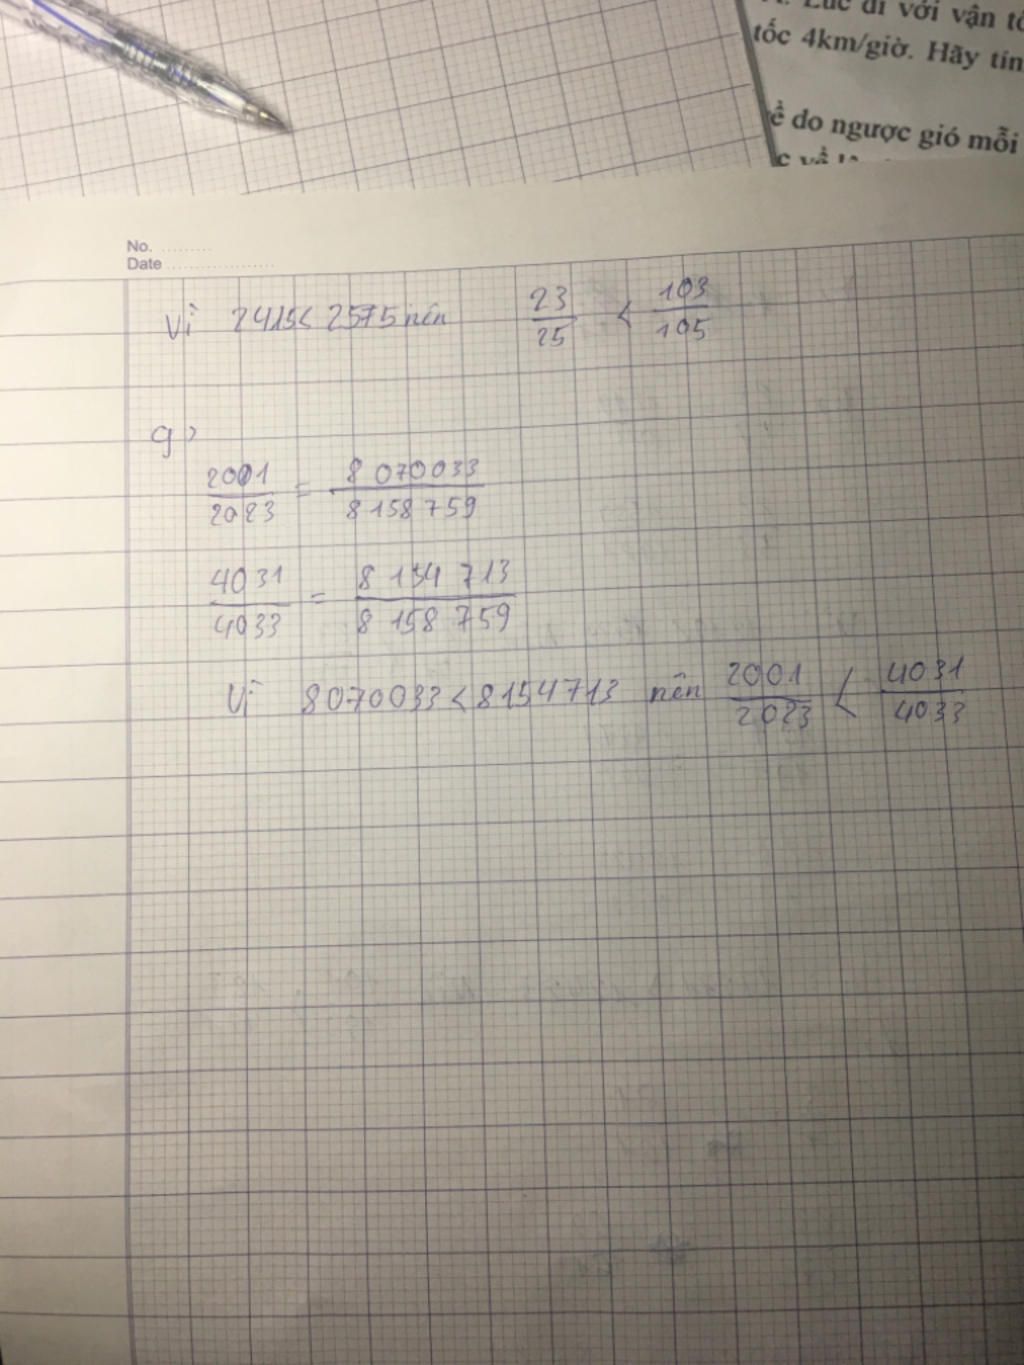 Lúc đi với vận tố
tốc 4km/giờ. Hãy tín
ề do ngược gió mỗi
No. ..........
Date ....................
Vì 2415 < 2575 nên 23/25 < 103/105
g)
2001/2023 = 8 070033/8 158 759
4031/4033 = 8 154 713/8 158 759
Vì 8070033 < 8154713 nên 2001/2023 < 4031/4033